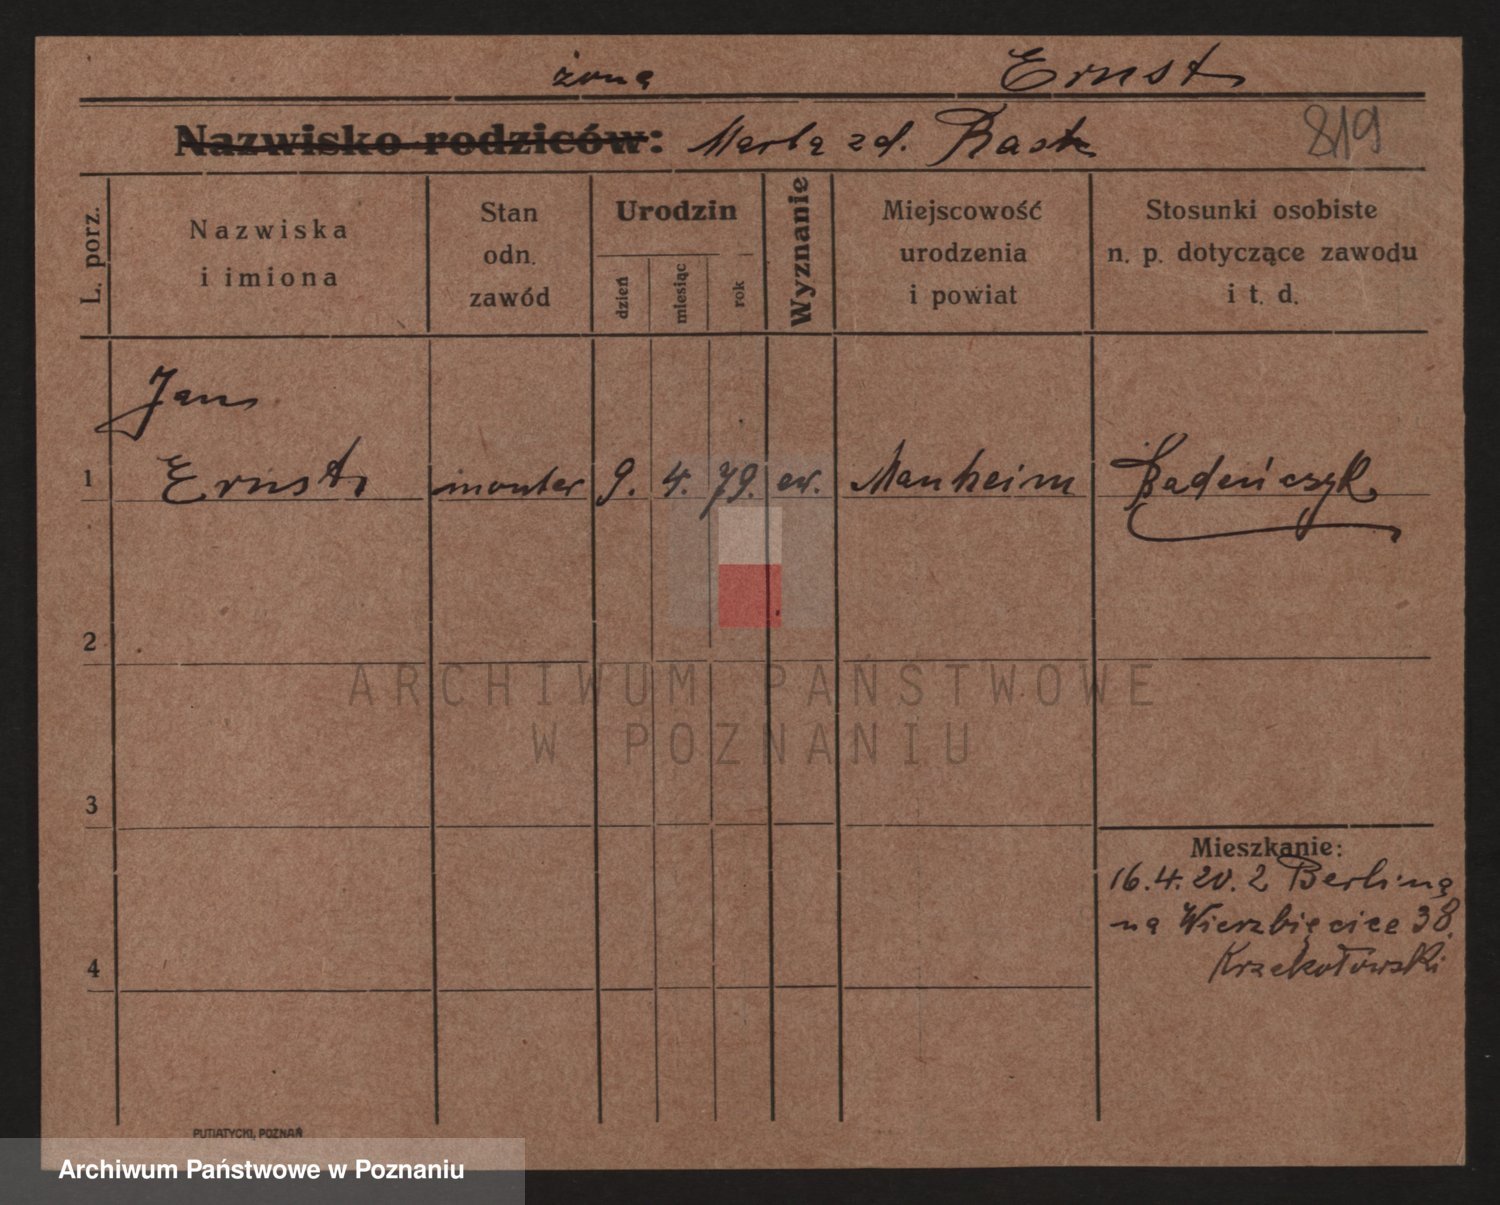 żoną Ernst
Nazwisko rodziców: Martą zd. Rask 819
L. porz.
Nazwiska
i imiona
Stan
odn.
zawód
Urodzin
dzień
miesiąc
rok
Wyznanie
Miejscowość
urodzenia
i powiat
Stosunki osobiste
n. p. dotyczące zawodu
i t. d.
Jan
1 Ernst monter 9. 4. 79. ew. Manheim Badeńczyk
2
ARCHIWUM PAŃSTWOWE
W POZNANIU
3
Mieszkanie:
16.4.20. z Berlina
na Wierzbięcice 38.
4 Krzekotowski
PUTIATYCKI, POZNAŃ
Archiwum Państwowe w Poznaniu